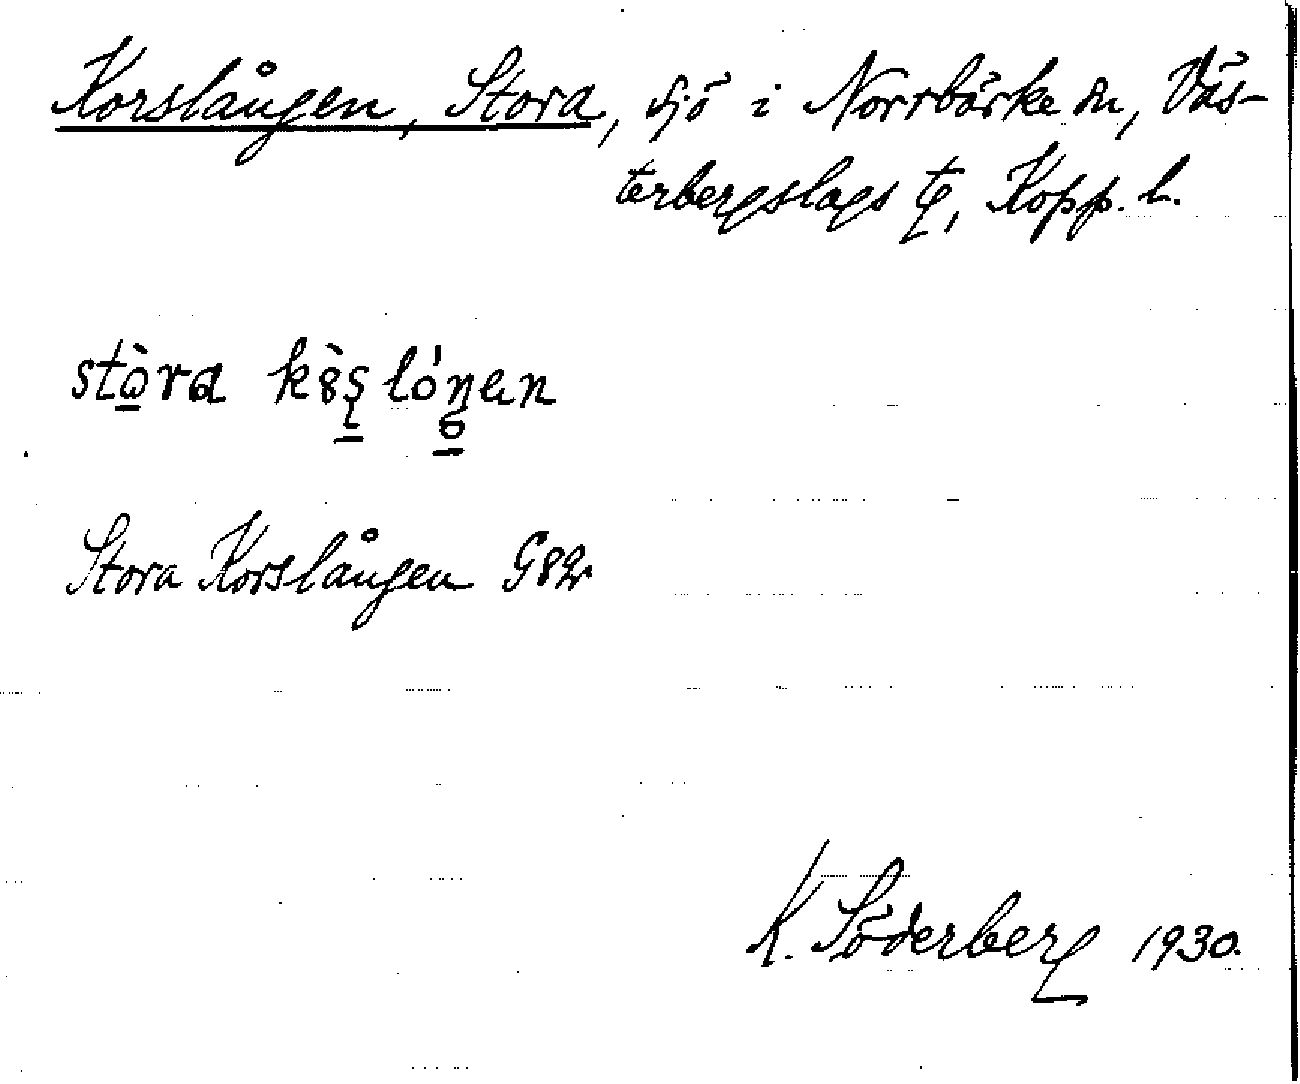 Korslången, Stora, sjö i Norrbärke sn, Väs-
terbergslags tg, Kopp. l.
Stora Korslången G82r
K. Söderberg 1930.